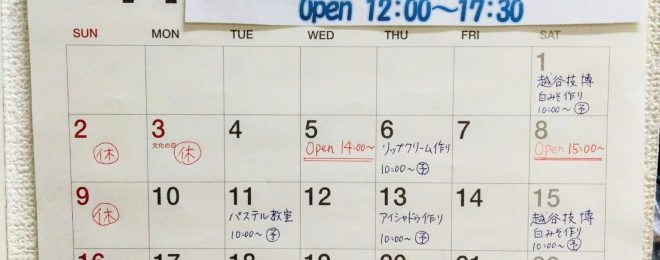 Open 12:00〜17:30
SUN MON TUE WED THU FRI SAT
1
越谷技博
白みそ作り
10:00〜 予
2 3 4 5 6 7 8
文化の日
休 休 Open 14:00〜 リップクリーム作り Open 15:00〜
10:00〜 予
9 10 11 12 13 14 15
休 パステル教室 アイシャドウ作り 越谷技博
10:00〜 予 10:00〜 予 白みそ作り
10:00〜 予
16 17 18 19 20 21